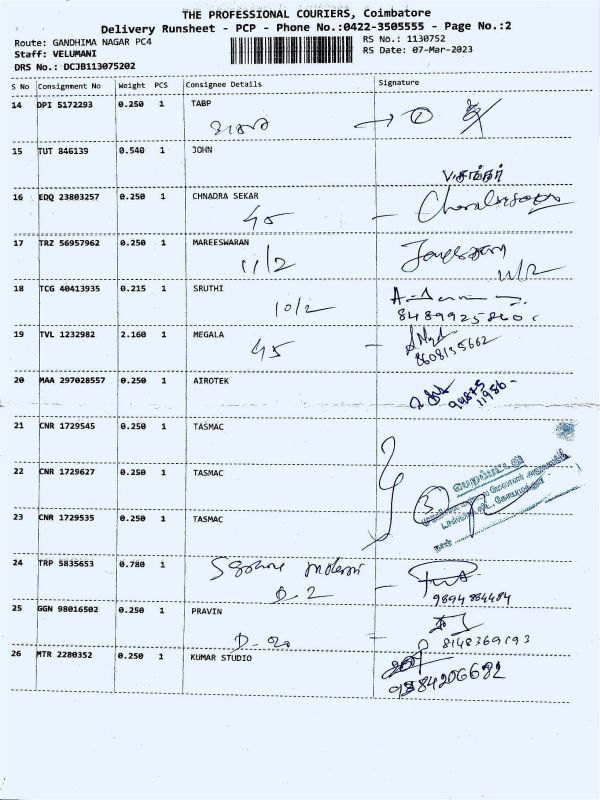 THE PROFESSIONAL COURIERS, Coimbatore
Delivery Runsheet - PCP - Phone No.:0422-3505555 - Page No.:2
Route: GANDHIMA NAGAR PC4
RS No.: 1130752
Staff: VELUMANI
RS Date: 07-Mar-2023
DRS No.: DCJB113075202
S No Consignment No Weight PCS Consignee Details Signature
14 DPI 5172293 0.250 1 TABP
→ 1
15 TUT 846139 0.540 1 JOHN
16 EDQ 23803257 0.250 1 CHNADRA SEKAR
45 -
17 TRZ 56957962 0.250 1 MAREESWARAN
11/2
11/2
18 TCG 40413935 0.215 1 SRUTHI
10/2
19 TVL 1232982 2.160 1 MEGALA
45 -
8608135662
20 MAA 297028557 0.250 1 AIROTEK
99875
11986-
21 CNR 1729545 0.250 1 TASMAC
22 CNR 1729627 0.250 1 TASMAC
3
23 CNR 1729535 0.250 1 TASMAC
24 TRP 5835653 0.780 1
D-2 -
9894884484
25 GGN 98016502 0.250 1 PRAVIN
8148369193
26 MTR 2280352 0.250 1 KUMAR STUDIO
9384206682